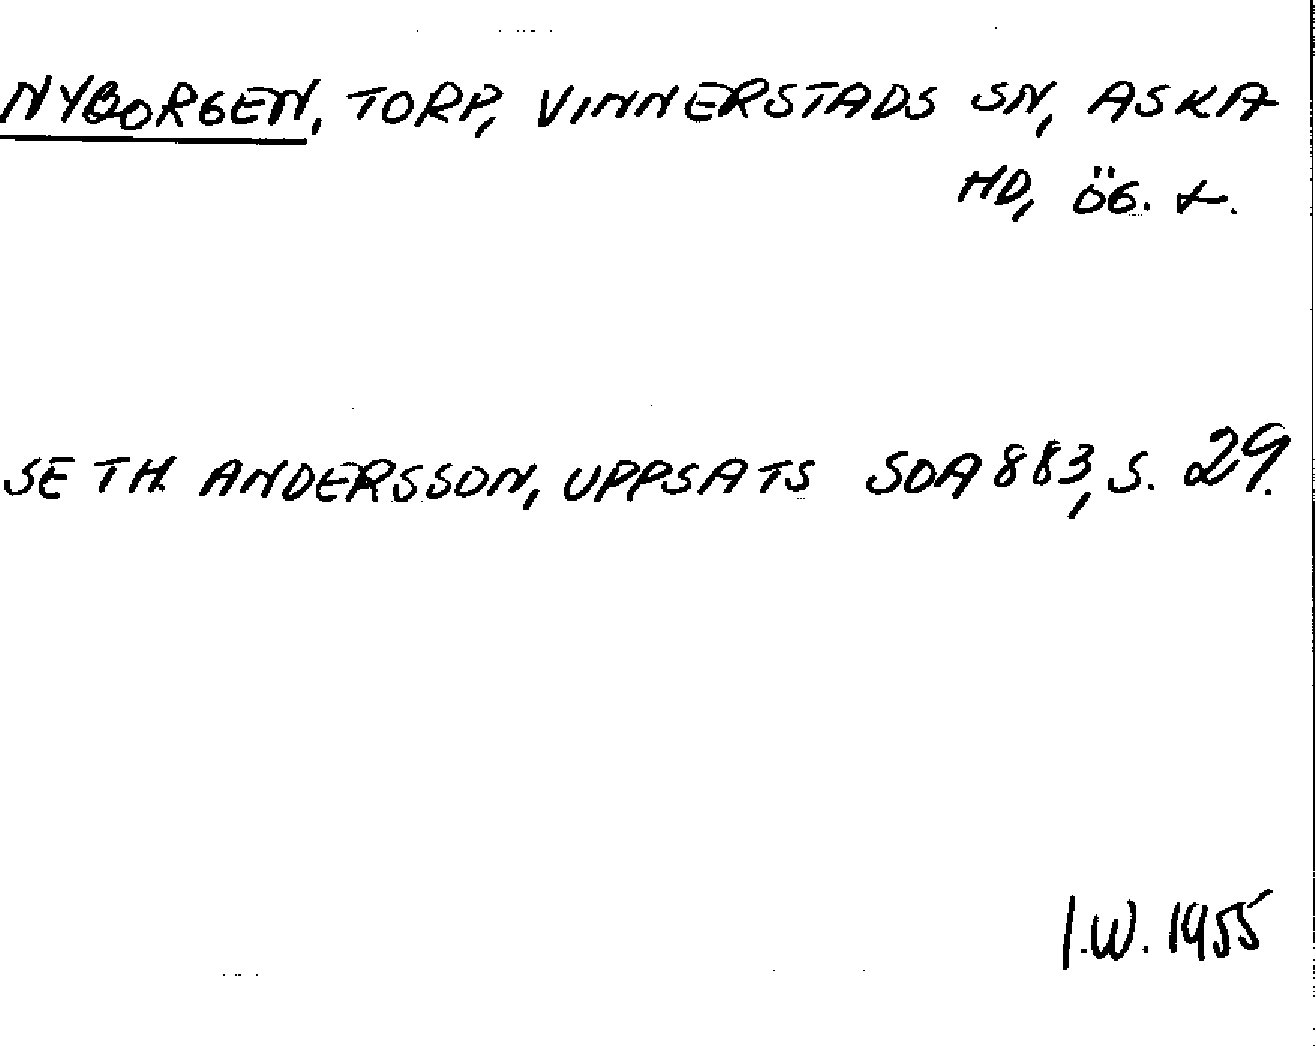 NYBORGEN, TORP, VINNERSTADS SN, ASKA
HD, ÖG. L.
SE TH. ANDERSSON, UPPSATS SOA 883, S. 29.
I.W. 1955